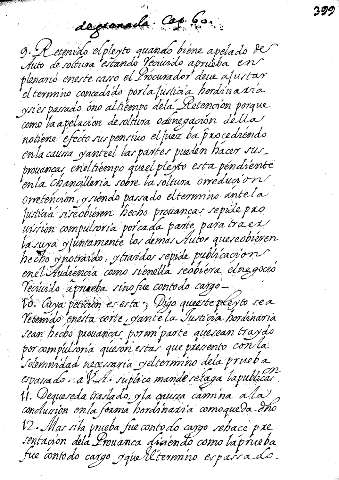 de granada. Cap. 60. 399
9. Retenido el pleyto quando biene apelado de
Auto de soltura estando reciuido aprueba en
plenario eneste caso el Procurador deue ajustar
el termino concedido por la Justicia hordinaria
ysi es pasado o no al tiempo de la Retencion porque
como la apelacion de soltura o denegacion della
notiene efecto suspensiuo el juez ba procediendo
en la causa yante el las partes pueden hacer sus
prouanças en el tiempo que el pleyto esta pendiente
en la Chancilleria sobre la soltura
oretencion, y siendo pasado el termino ante la
Justicia si se obieren hecho prouanças se pide pro
uission compulsoria por cada parte para traer
la suya y juntamente los demas Autos que se obieren
hecho y notraido, y traidos se pide publicacion
en el Audiencia como si en ella se obiera el negocio
reciuido aprueba sino fue con todo cargo
10. Cuya peticion es esta; Digo que este pleyto se a
retenido en esta corte, y ante la Justicia hordinaria
sean hecho prouanças por mi parte que sean traydo
por compulsoria que son estas que presento con la
solemnidad necesaria y el termino de la prueba
es pasado. a V. A. suplico mande se haga la publicacon
11. De que se da traslado, y la causa camina a la
conclusion en la forma hordinaria como queda dho
12. Mas si la prueba fue con todo cargo se hace pre
sentacion de la Prouanca diciendo como la prueba
fue con todo cargo y que el termino es pasado.